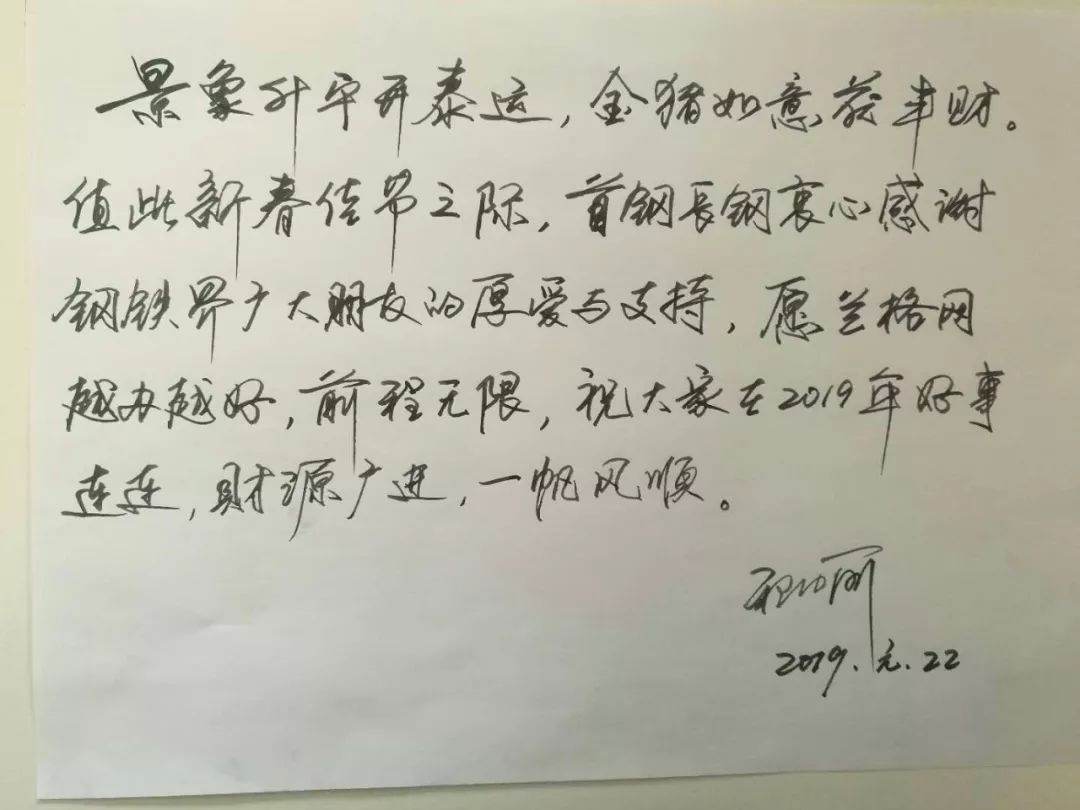 景象升平开泰运，金猪如意获丰财。
值此新春佳节之际，首钢长钢衷心感谢
钢铁界广大朋友的厚爱与支持，愿兰格网
越办越好，前程无限，祝大家在2019年好事
连连，财源广进，一帆风顺。
2019.元.22